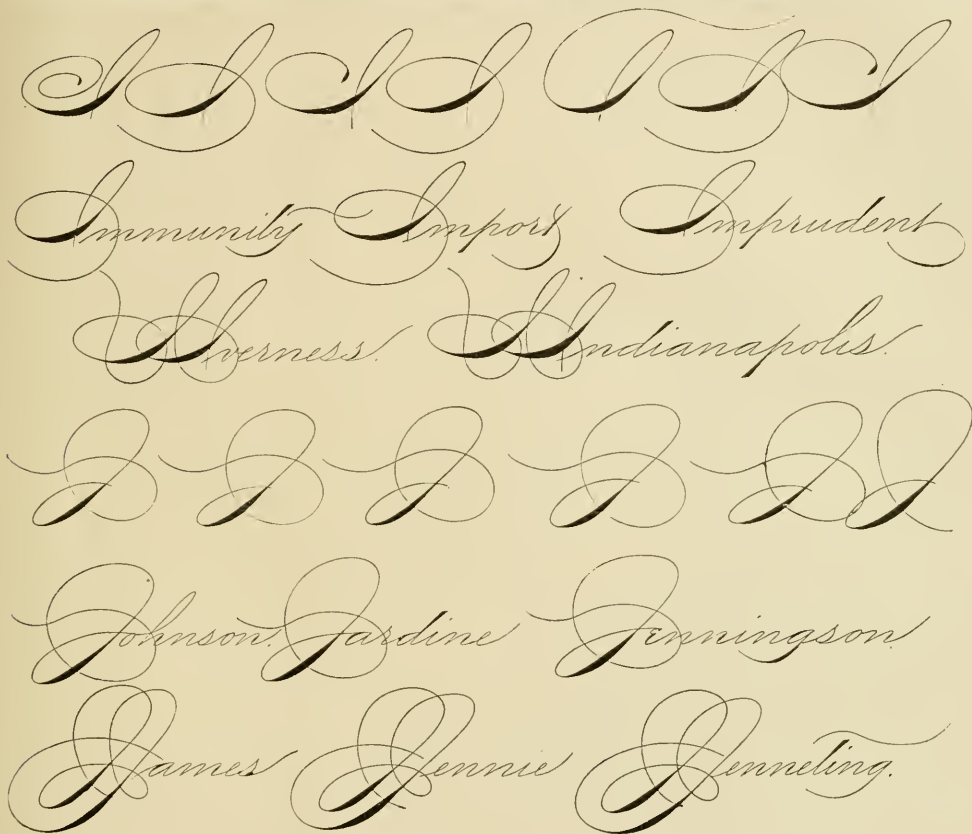 I I I I I I I
Immunity Import Imprudent
I Iverness. I Indianapolis.
J J J J J J
Johnson. Jardine Jenningson.
J James J Jennie J Jenneting.